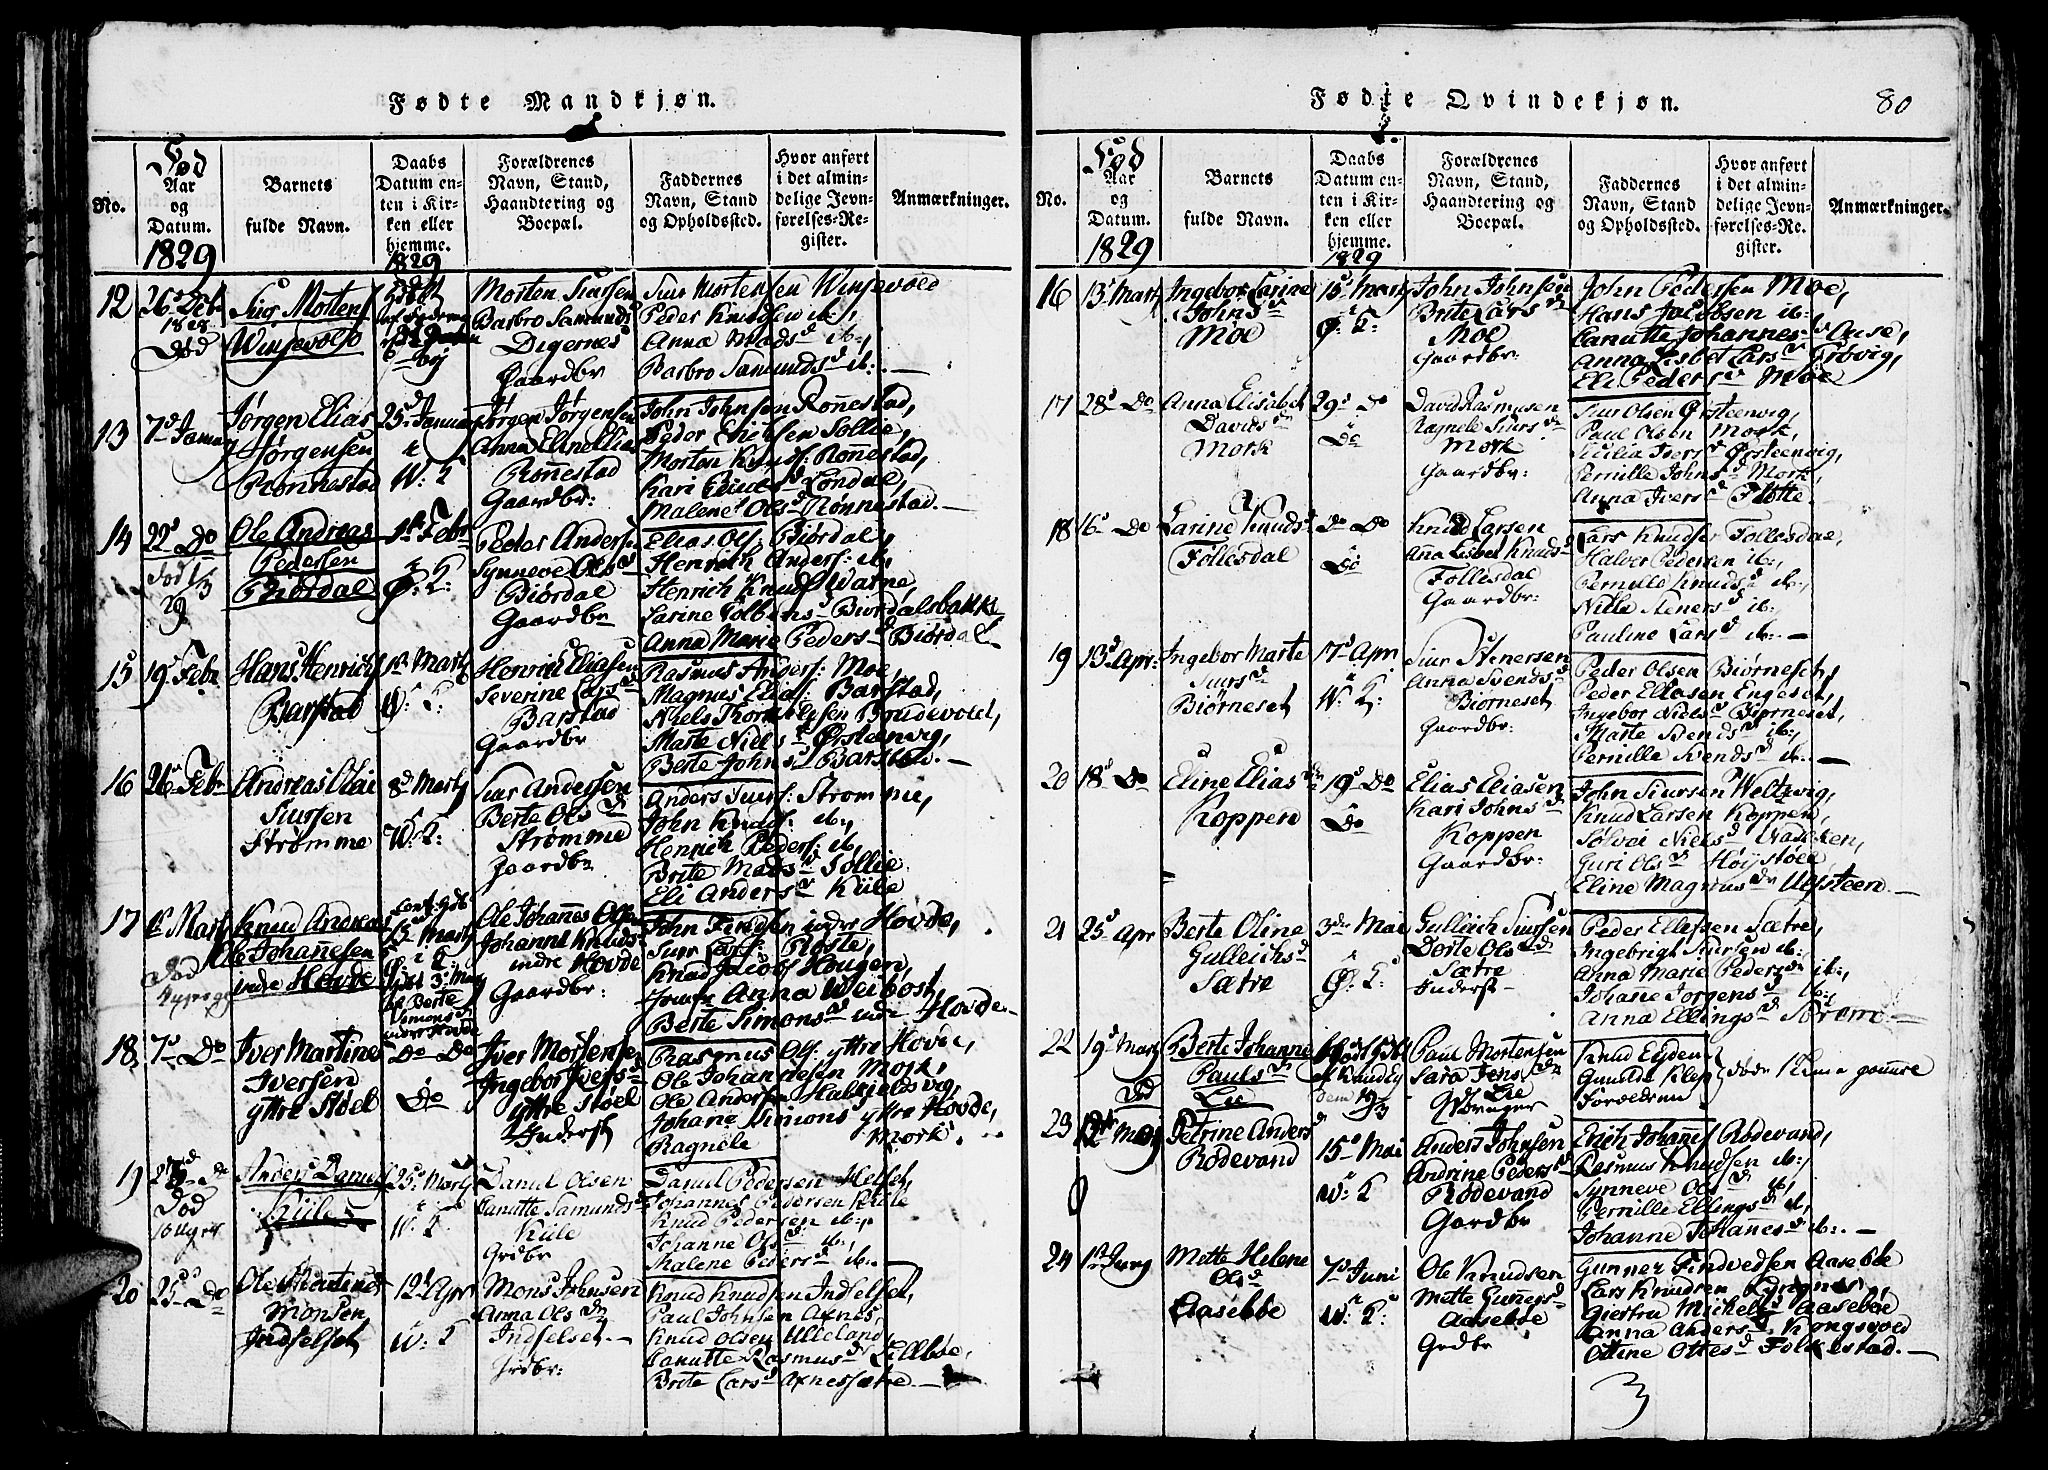 Fødte Mandkjøn.
No.
Fød
Aar
og
Datum.
1829
Barnets
fulde Navn.
Daabs
Datum en-
ten i Kir-
ken eller
hjemme.
1829
Forældrenes
Navn, Stand,
Haandtering og
Boepæl.
Faddernes
Navn, Stand
og Opholdssted.
Hvor anført
i det almin-
delige Jevn-
førelses-Re-
gister.
Anmærkninger.
12
26 Debr
1828
Død
Siur Mortens
Winsevold
Morten Siursen
Barbro Samunds
Digernes
Gaardbr
Siur Mortensen Winsevold
Peder Knudsen ib:,
Anna Mads d ib:,
Barbro Samunds d ib:. —
13
7d Januar
Jørgen Elias
Jørgensen
Rønnestad
25d Januar
i
W: K
Jørgen Jørgensen
Anna Elias
Rønnestad
Gaardbr:
John Johnsen Ronnestad,
Peder Sollie,
Morten Knuds: Ronnestad,
Kari Londal,
Malene Ols d Rønnestad. —
14
22d Do
Død 1/3
29
Ole Andreas
Pedersen
Biørdal
1st Febr
i
Ø: K:
Peder Anders
Synneve Ols d
Biørdal
Gaardbr
Elias Ols: Biørdal,
Henrich Anders: ib,
Henrich Knuds Watne,
Larine Biordalsbakk
Anna Marie Peders d Biørdal
15
19 Febr
Hans Henrichs
Barstad
1st Marts
Ø: K:
Henrik Eliasen
Severine Lars d
Barstad
Gaardbr
Rasmus Anders: Moe,
Magnus Elias: Barstad,
Niels Brudevold,
Marte Niels d Ørsteenvig,
Berte Johns d Barstad. —
16
26 Febr
Andreas Olai
Siursen
Strømme
8d Marts
i
W: K:
Siur Andersen
Berte Ols d
Strømme
Gaardbr
Anders Siurs: Stromme,
John Knuds: ib:,
Henrich Peders: ib,
Brite Mads d Sollie
Eli Anders d Kiile
17
1st Marts
Død
Knud Andreas
Ole Johannesen
indre Hovde
15 Marts
i
Ø: K
Ole Johannes Ols
Johanne Knuds
indre Hovde
Gaardbr:
John Findsen indre Hovde,
Siur Lars: Roste,
Knud Jacobs Hougen,
Jomfr Anna Weibost,
Berte Simons d indr Hovde —
18
7d Do
Iver Martine
Iversen
yttre Støel
Do Do
Do
Iver Mortensen
Ingebor Ivers d
yttre Støel
Inderst
Rasmus Ols yttre Hovde,
Ole Johannesen Mork,
Ole Andersen Halkieldsvig,
Johane Simons yttre Hovde,
Ragnele Mork.
19
Død
Anders Daniels
Kiile
25 Marts
i
W: K
Daniel Olsen
Canutte Samunds
Kiile
Grdbr
Daniel Pedersen Helset,
Johannes Pedersen Kiile
Knud Pedersen ib:,
Johanne Ols d ib:,
Malene Peders d ib:. —
20
25d Do
Ole Martinus
Monsen
Indselset
12 Apr
i
W: K
Mons Johnsen
Anna Ols dr
Indselset —
Grdbr:
Knud Knudsen Indselset,
Paul Johnsen Axnes,
Knud Olsen Ulleland,
Canutte Rasmus d Lillebøe,
Brite Lars d Axnessætre —
Fødte Qvindekjøn.
80
No.
Fød
Aar
og
Datum.
1829
Barnets
fulde Navn.
Daabs
Datum en-
ten i Kir-
ken eller
hjemme.
1829
Forældrenes
Navn, Stand,
Haandtering og
Boepæl.
Faddernes
Navn, Stand
og Opholdssted.
Hvor anført
i det almin-
delige Jevn-
førelses-Re-
gister.
Anmærkninger.
16
13d Marts
Ingebor Carine
Johns d
Moe
15d Marts
i
Ø: K:
John Johnsen
Brite Lars d
Moe
Gaardbr:
John Pedersen Moe,
Hans Jacobsen ib:,
Canutte Johannes d Aase,
Anna Lisbet Lars d Trovig,
Eli Peders d Moe
17
28d Do
Anna Elisabet
Davids dr
Mork
29d Do
Do
David Rasmusen
Ragnele Siurs dr
Mork
Gaardbr:
Siur Olsen Ørsteenvig,
Paul Olsen Mork,
Sicilia Ivers d Ørsteenvig,
Pernille Johns d Mork,
Anna Ivers d Flotte. —
18
16d Do
Larine Knuds d
Follesdal
Do Do
Do
Knud Larsen
Anna Lisbet Knuds d
Follesdal
Gaardbr:
Lars Knudsen Follesdal,
Halver Pedersen ib:,
Pernille Knuds d ib:,
Nille Steners d ib:,
Pauline Lars d ib:. —
19
13d Apr:
Ingebor Marte
Siurs d
Biørneset
17d Apr
i
W: K:
Siur Stenersen
Anna Svends d
Biørneset
Gaardbr:
Peder Olsen Biørneset,
Peder Eliasen Engeset,
Ingebor Niels d Biørneset,
Marte Svends d ib:,
Pernille Svends d ib:. —
20
18d Do
Eline Elias dr
Koppen
19d Do
Do
Elias Eliasen
Kari Johns d
Koppen
Gaardbr:
John Siursen Weltzvig,
Knud Larsen Koppen,
Sølvei Niels d Nakken,
Guri Ols d Høystøel,
Eline Magnus dr Ulfsteen. —
21
25d Apr
Berte Oline
Gulleichs d
Sætre
3die Mai
i
Ø: K:
Gulleich Siursen
Dorte Ols d
Sætre
Inderst —
Peder Ellefsen Sætre,
Ingebrigt Siursen ib:,
Anna Marie Peders dr ib:,
Johane Jorgens d ib:,
Anna Ellings d Strøm. —
22
19d Marts
Død
Berte Johanne
Pauls d
Lie
Paul Mortensen
Sara Jens dr
Lie
Knud Eyden
Gunilde Klep
Forældrene
23
12te Maj
Petrine Anders d
Rødevand
15d Mai
i
W: K
Anders Johnsen
Andrine Peders d
Rødevand
Gaardbr
Erich Johannes Rødevand,
Rasmus Knudsen ib:,
Synneve Ols d ib,
Pernille Ellings d ib,
Johanne Johanes d ib:. —
24
Mette Helene
Ols d
Aasebøe
7d Juni
i
W: K:
Ole Knudsen
Mette Gunners d
Aasebøe
Grdbr
Gunner Findvedsen Aasebøe
Lars Knudsen
Giertru Michels d Aasebøe
Anna Anders d Kongsvold
Ottine Ottes d Folkestad. —